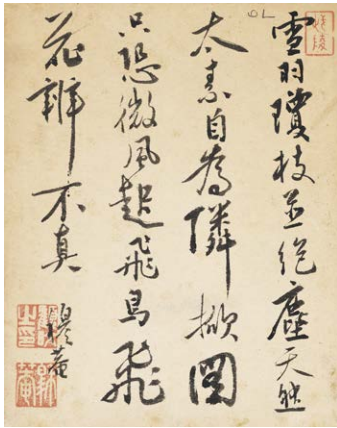 雪羽瓊枝並絕塵天然
太素自為隣掀圖
只恐微風起飛鳥飛
花辨不真
穆菴